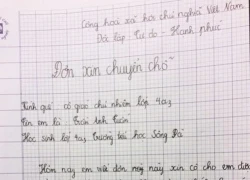 Cộng hoà xã hội chủ nghĩa Việt Nam
Độc lập Tự do - Hạnh phúc
Đơn xin chuyển chỗ
Kính gửi: cô giáo chủ nhiệm lớp 4a3
Tên em là: Trần
Học sinh lớp 4a3 Trường tiểu học Sông Đà
Hôm nay em viết đơn này xin cô cho em được